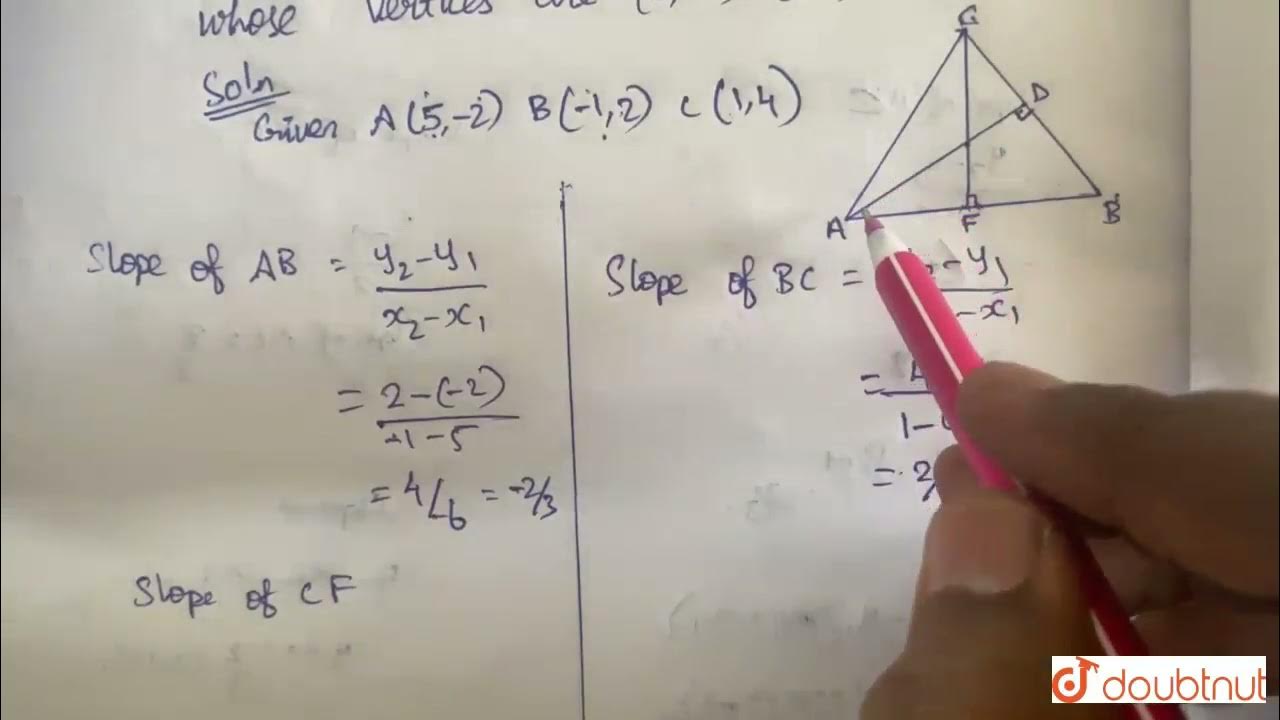 whose vertices are
Soln
Given A(5,-2) B(-1,2) C(1,4)
C
D
A
F
B
Slope of AB = y₂-y₁
x₂-x₁
= 2-(-2)
-1-5
= 4/-6 = -2/3
Slope of CF
Slope of BC = -y₁
-x₁
=
1-
= 2/
doubtnut